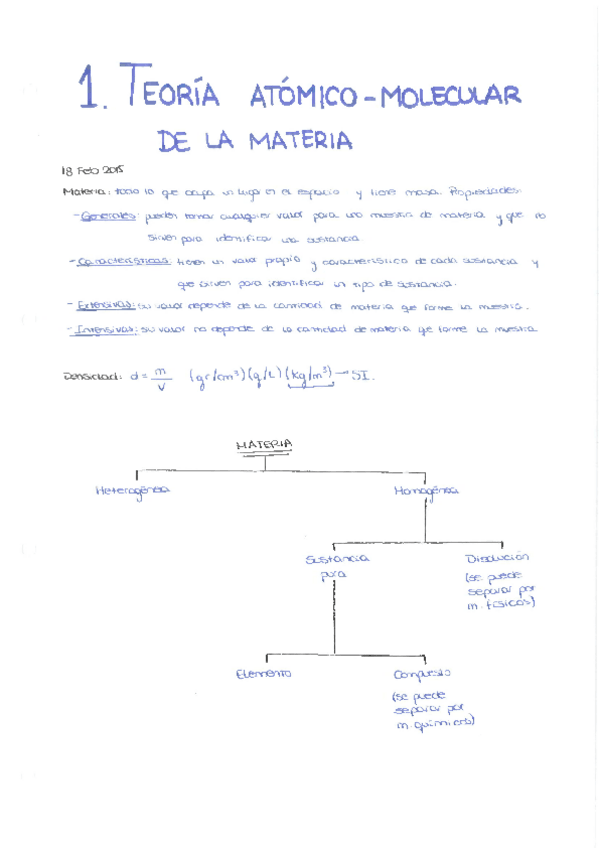 1. TEORÍA ATÓMICO-MOLECULAR
DE LA MATERIA
18 Feb 2015
Materia: todo lo que ocupa un lugar en el espacio y tiene masa. Propiedades:
- Generales: pueden tomar cualquier valor para una muestra de materia y que no
sirven para identificar una sustancia
- Características: tienen un valor propio y característico de cada sustancia y
que sirven para identificar un tipo de sustancia.
- Extensivas: su valor depende de la cantidad de materia que forme la muestra.
- Intensivas: su valor no depende de la cantidad de materia que forme la muestra
Densidad: d = m/V (gr/cm³) (g/L) (kg/m³) → SI.
MATERIA
Heterogénea Homogénea
Sustancia pura
Disolución
(se puede
separar por
m. físicos)
Elemento Compuesto
(se puede
separar por
m. químicos)